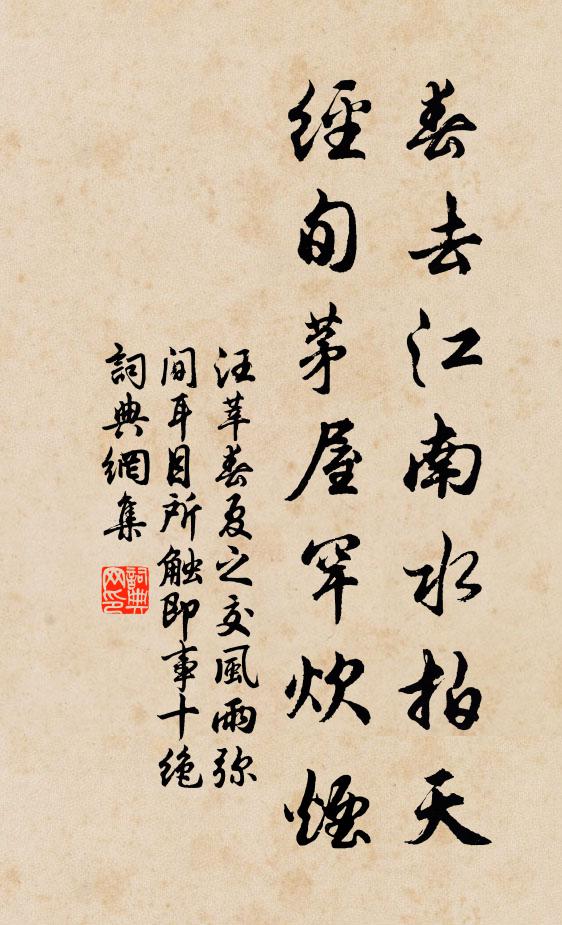 春去江南水拍天
經旬茅屋罕炊煙
汪莘春夏之交風雨弥
間耳目所觸即事十绝
詞典網集
詞典網印